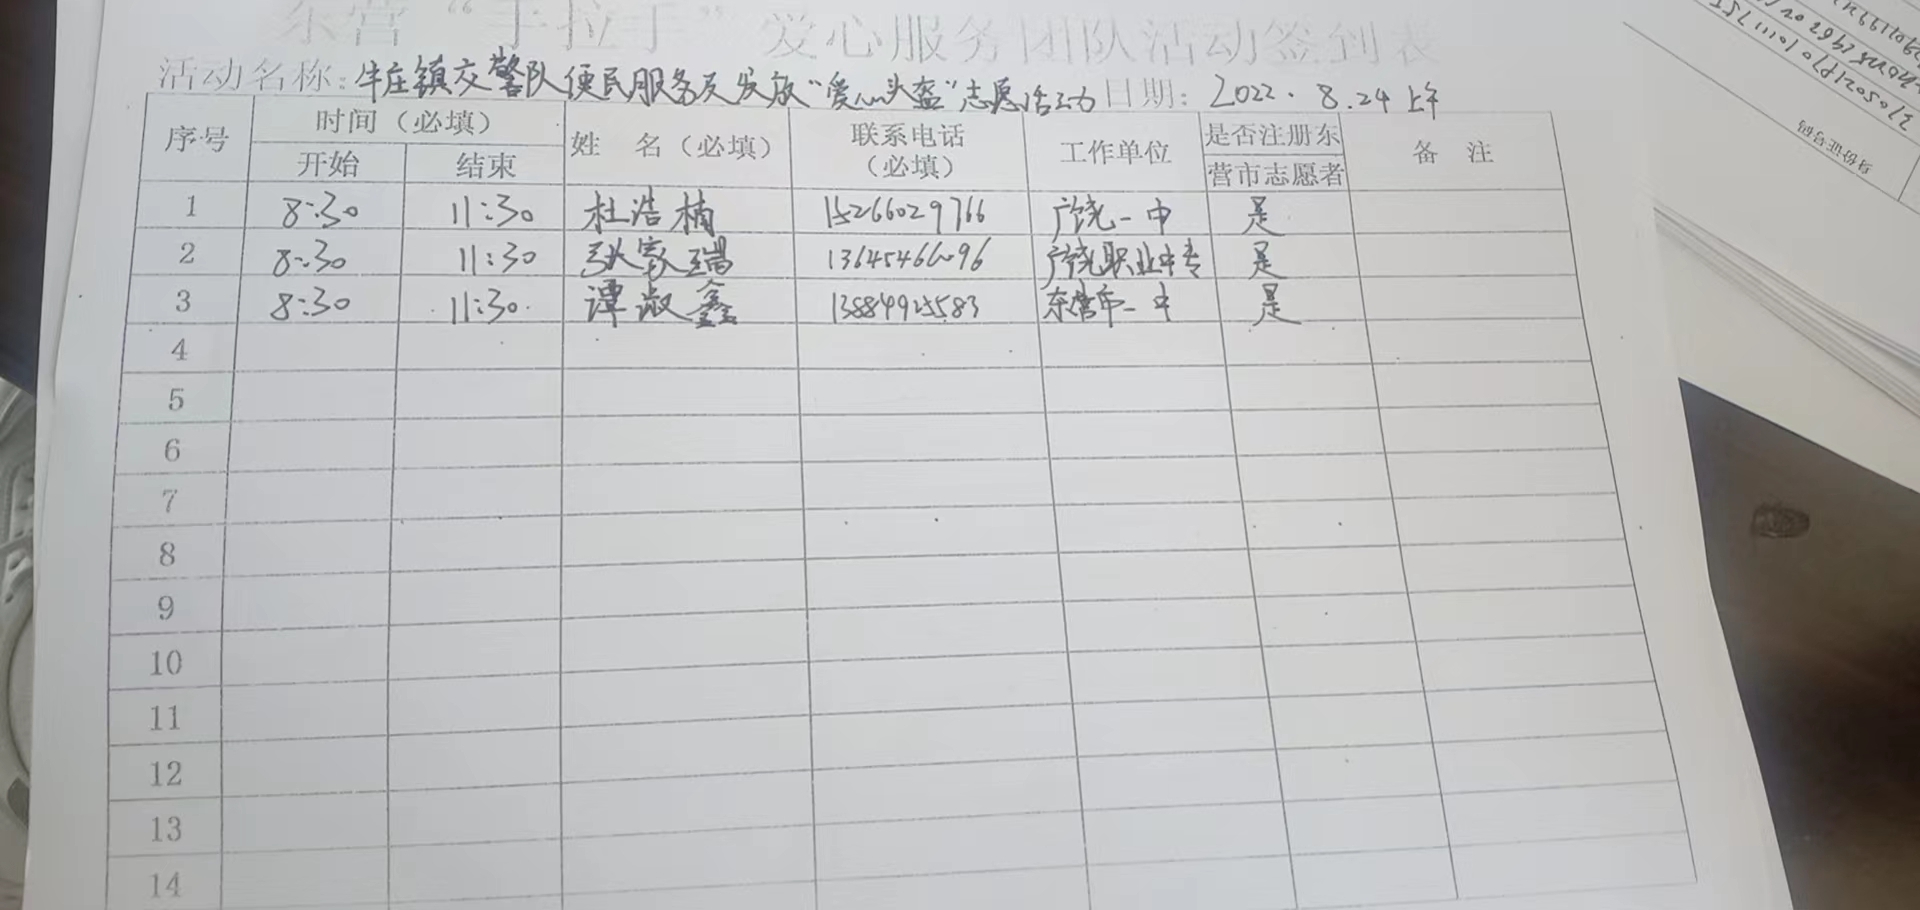 东营“手拉手”爱心服务团队活动签到表
活动名称：牛庄镇交警队便民服务及发放“爱心头盔”志愿活动 日期：2022.8.24上午
序号 时间（必填） 姓 名（必填） 联系电话（必填） 工作单位 是否注册东营市志愿者 备 注
开始 结束
1 8:30 11:30 杜浩楠 15266029766 广饶一中 是
2 8:30 11:30 张家瑞 13645466096 广饶职业中专 是
3 8:30 11:30 谭淑鑫 13884925583 东营市一中 是
4
5
6
7
8
9
10
11
12
13
14
身份证号码